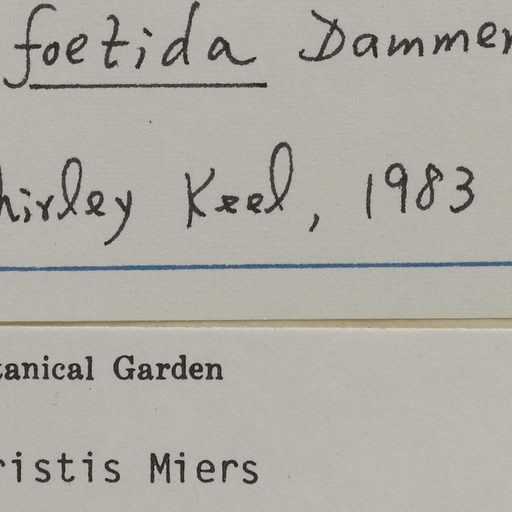 foetida Dammer
hirley Keel, 1983
tanical Garden
ristis Miers